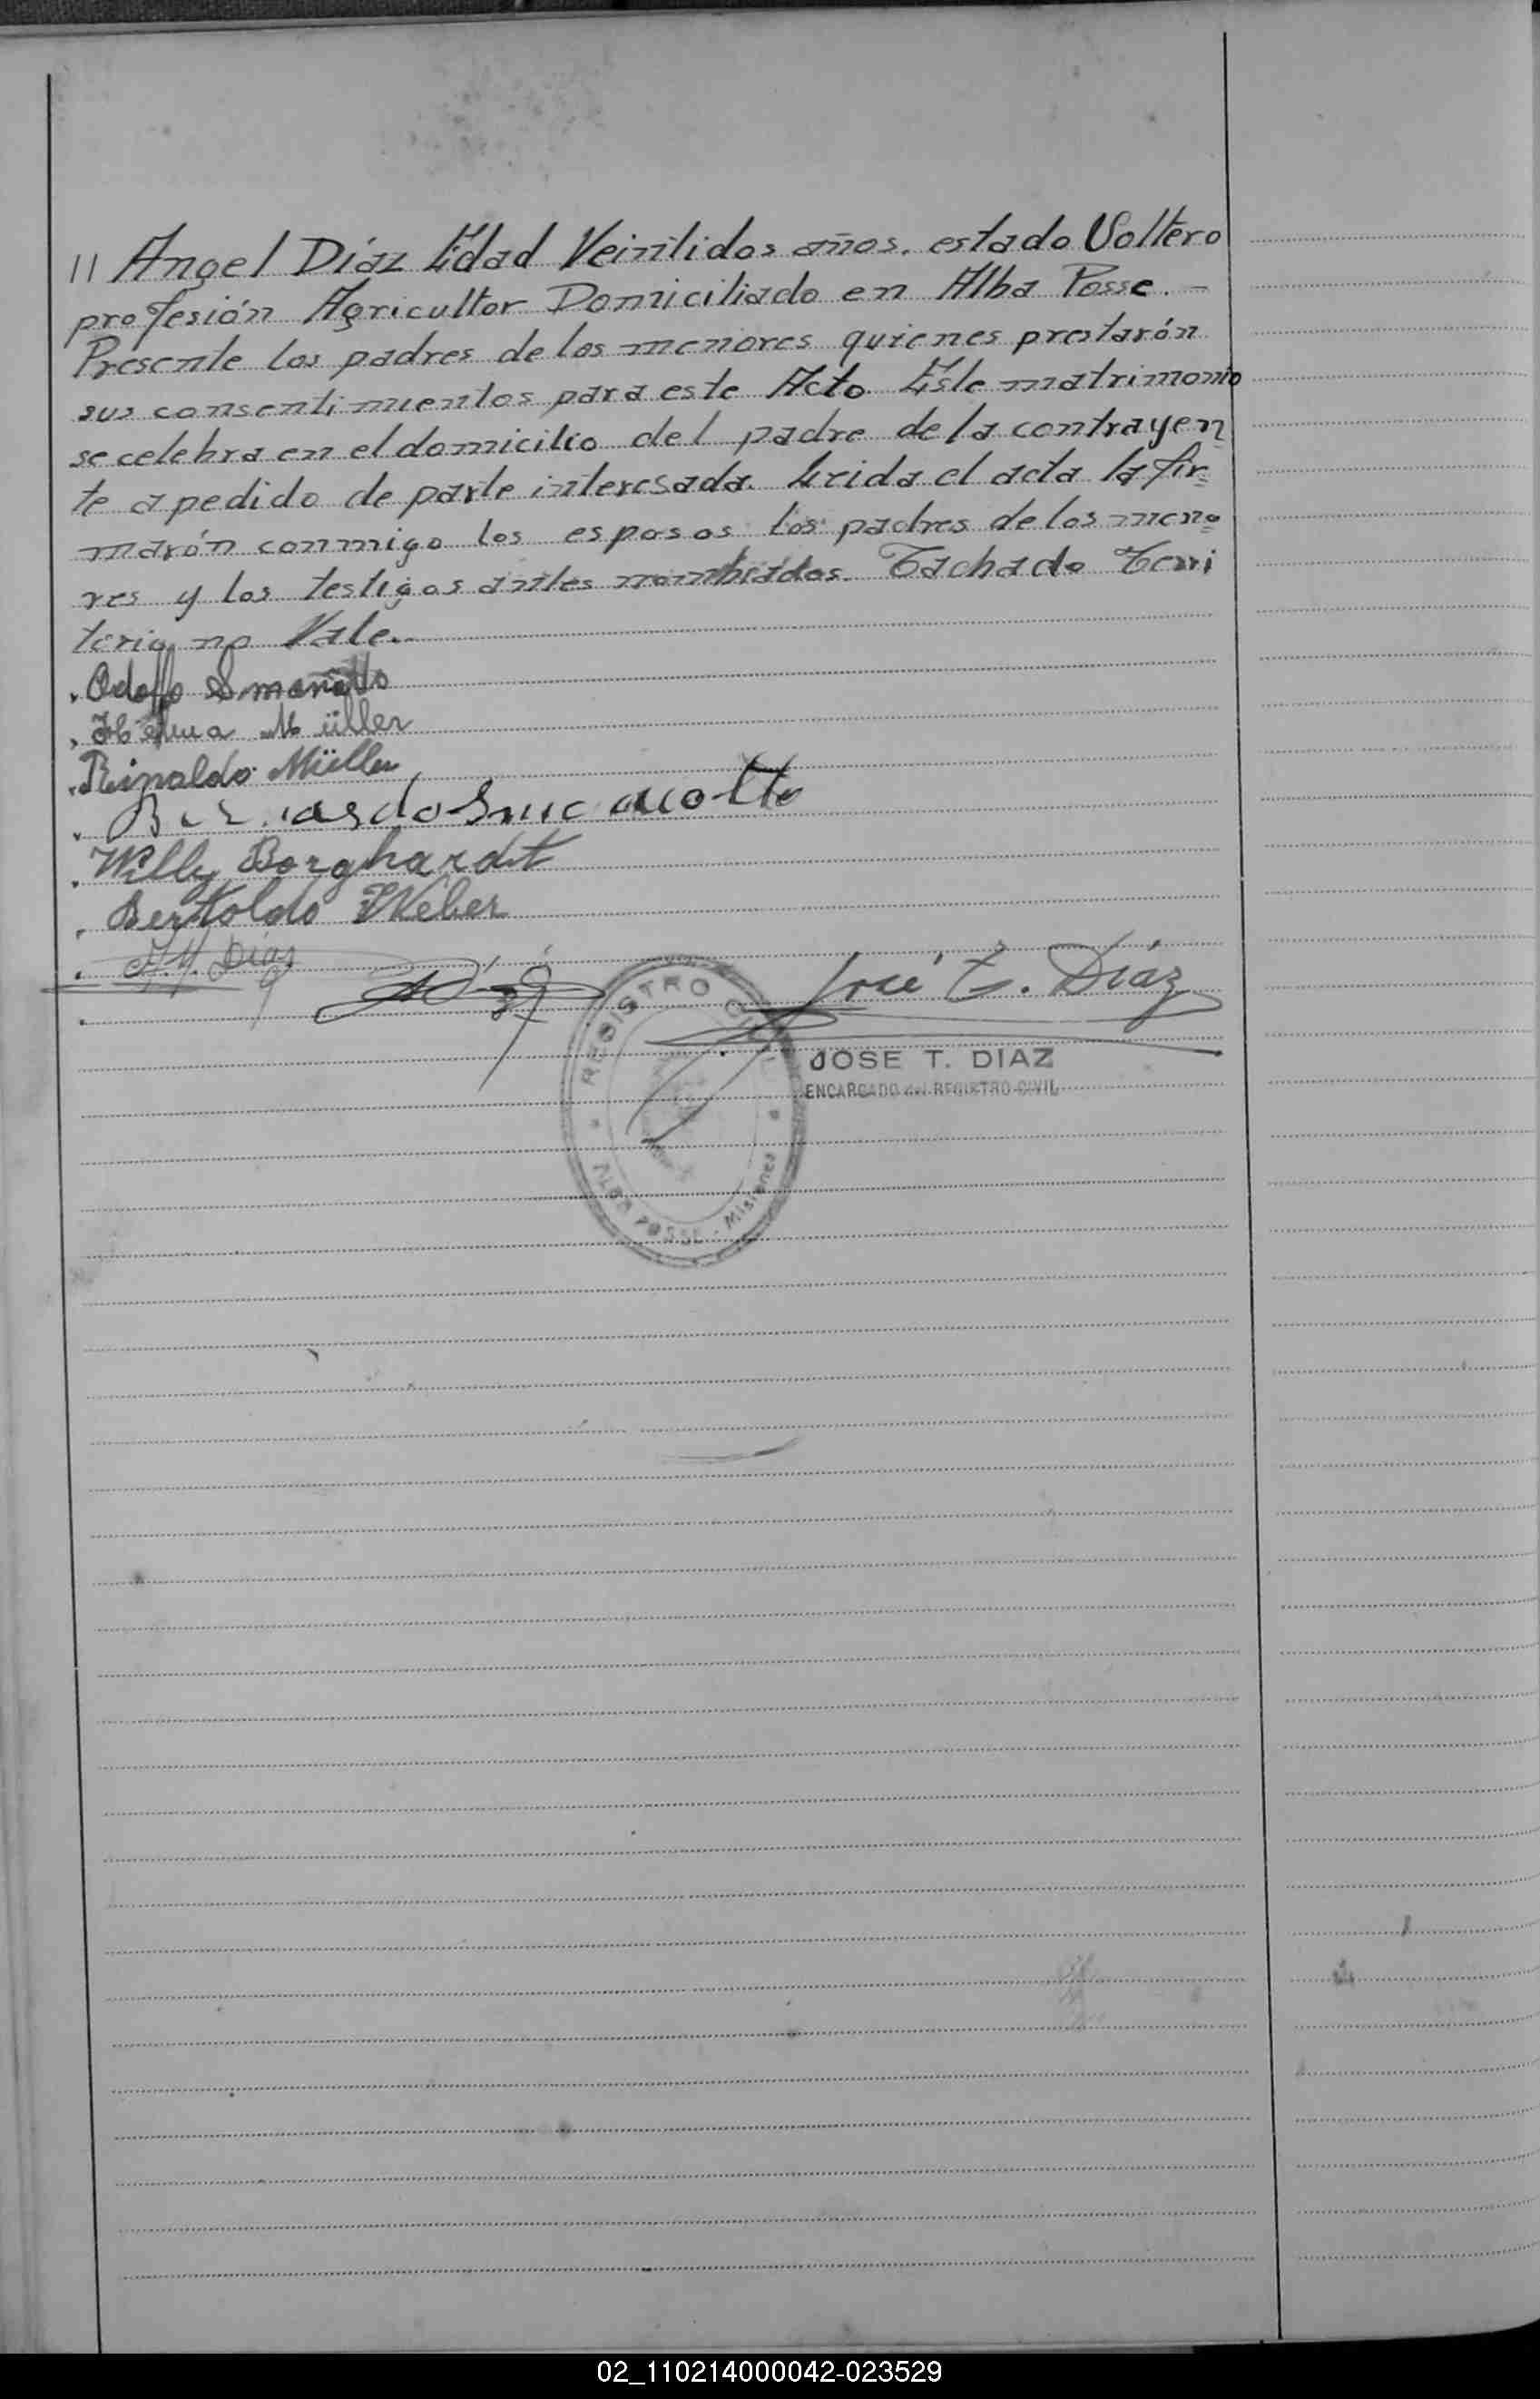 11 Angel Díaz Edad Veintidos años. estado Soltero
profesión Agricultor Domiciliado en Alba Posse. -
Presente los padres de los menores quienes prestarón
sus consentimientos para este Acto. Este matrimonio
se celebra en el domicilio del padre de la contrayen
te a pedido de parte interesada. Leida el acta la fir=
marón conmigo los esposos los padres de los meno=
res y los testigos antes nombrados. Tachado Terri
torio no Vale.
Müller
Reinaldo Müller
Willy Borghardt
Bertoldo Weber
Díaz
José T. Díaz
REGISTRO CIVIL
JOSE T. DIAZ
ENCARGADO del REGISTRO CIVIL
ALBA POSSE - Misiones
02_110214000042-023529